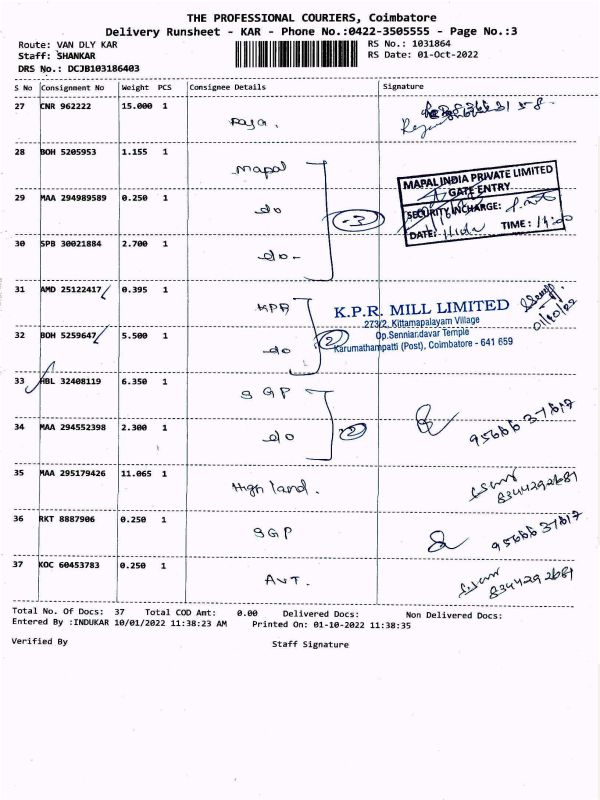 THE PROFESSIONAL COURIERS, Coimbatore
Delivery Runsheet - KAR - Phone No.:0422-3505555 - Page No.:3
Route: VAN DLY KAR
RS No.: 1031864
Staff: SHANKAR
RS Date: 01-Oct-2022
DRS No.: DCJB103186403
S No Consignment No Weight PCS Consignee Details Signature
27 CNR 962222 15.000 1
Raja.
28 BOH 5205953 1.155 1
Mapal
MAPAL INDIA PRIVATE LIMITED
GATE ENTRY
SECURITY INCHARGE:
DATE: TIME:
29 MAA 294989589 0.250 1
do
-3
30 SPB 30021884 2.700 1
do-
31 AMD 25122417 0.395 1
KPR
K.P.R. MILL LIMITED
273/2, Kittamapalayam Village
Op.Senniandavar Temple
Karumathampatti (Post), Coimbatore - 641 659
01/10/22
32 BOH 5259647 5.500 1
do
2
33 HBL 32408119 6.350 1
SGP
34 MAA 294552398 2.300 1
do
2
9566637817
35 MAA 295179426 11.065 1
High land.
8344292681
36 RKT 8887906 0.250 1
SGP
9566637817
37 KOC 60453783 0.250 1
AVT.
8344292681
Total No. Of Docs: 37 Total COD Amt: 0.00 Delivered Docs: Non Delivered Docs:
Entered By :INDUKAR 10/01/2022 11:38:23 AM Printed On: 01-10-2022 11:38:35
Verified By
Staff Signature